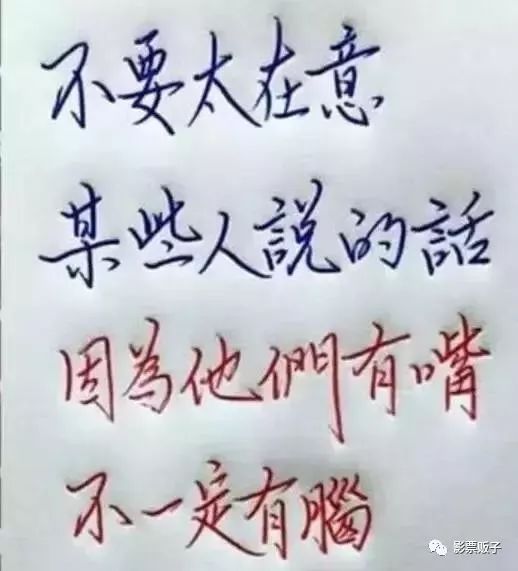 不要太在意
某些人說的話
因為他們有嘴
不一定有腦
影票贩子